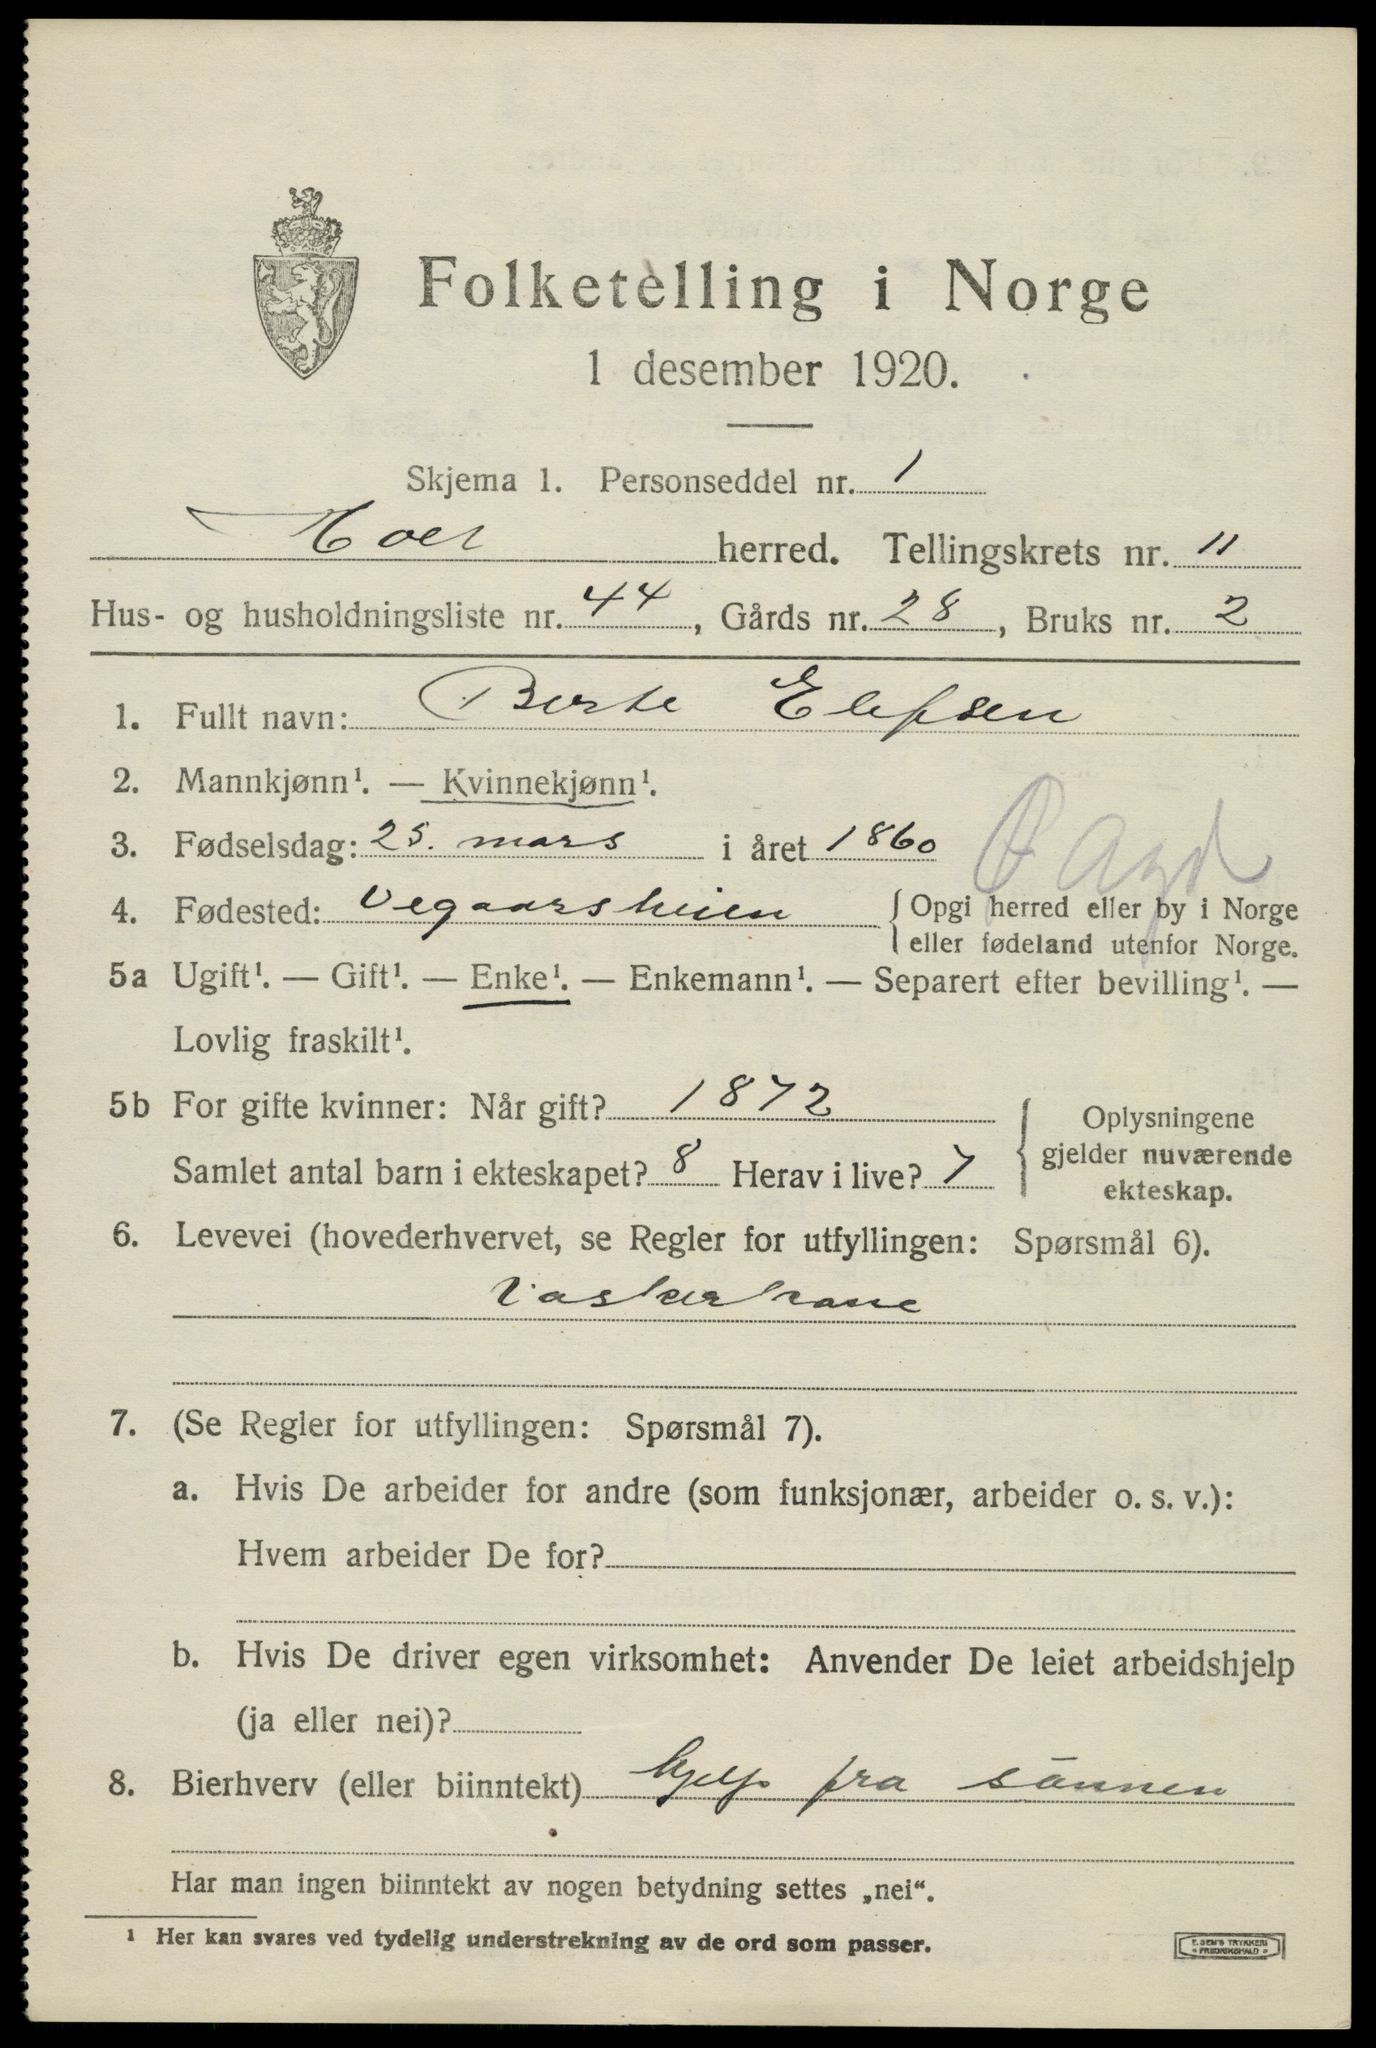 Folketelling i Norge
1 desember 1920.
Skjema 1. Personseddel nr. 1
Holt herred. Tellingskrets nr. 11
Hus- og husholdningsliste nr. 44, Gårds nr. 28, Bruks nr. 2
1. Fullt navn: Berte Elefsen
2. Mannkjønn¹. — Kvinnekjønn¹.
3. Fødselsdag: 25. mars i året 1860
Ø Agd
4. Fødested: Vegaarsheien { Opgi herred eller by i Norge
eller fødeland utenfor Norge.
5a Ugift¹. — Gift¹. — Enke¹. — Enkemann¹. — Separert efter bevilling¹. —
Lovlig fraskilt¹.
5b For gifte kvinner: Når gift? 1872
Samlet antal barn i ekteskapet? 8 Herav i live? 7
{ Oplysningene
gjelder nuværende
ekteskap.
6. Levevei (hovederhvervet, se Regler for utfyllingen: Spørsmål 6).
Vaskerkone
7. (Se Regler for utfyllingen: Spørsmål 7).
a. Hvis De arbeider for andre (som funksjonær, arbeider o. s. v.):
Hvem arbeider De for?
b. Hvis De driver egen virksomhet: Anvender De leiet arbeidshjelp
(ja eller nei)?
8. Bierhverv (eller biinntekt) hjelp fra sönnen
Har man ingen biinntekt av nogen betydning settes „nei“.
¹ Her kan svares ved tydelig understrekning av de ord som passer.
E. SEM'S TRYKKERI
FREDRIKSHALD